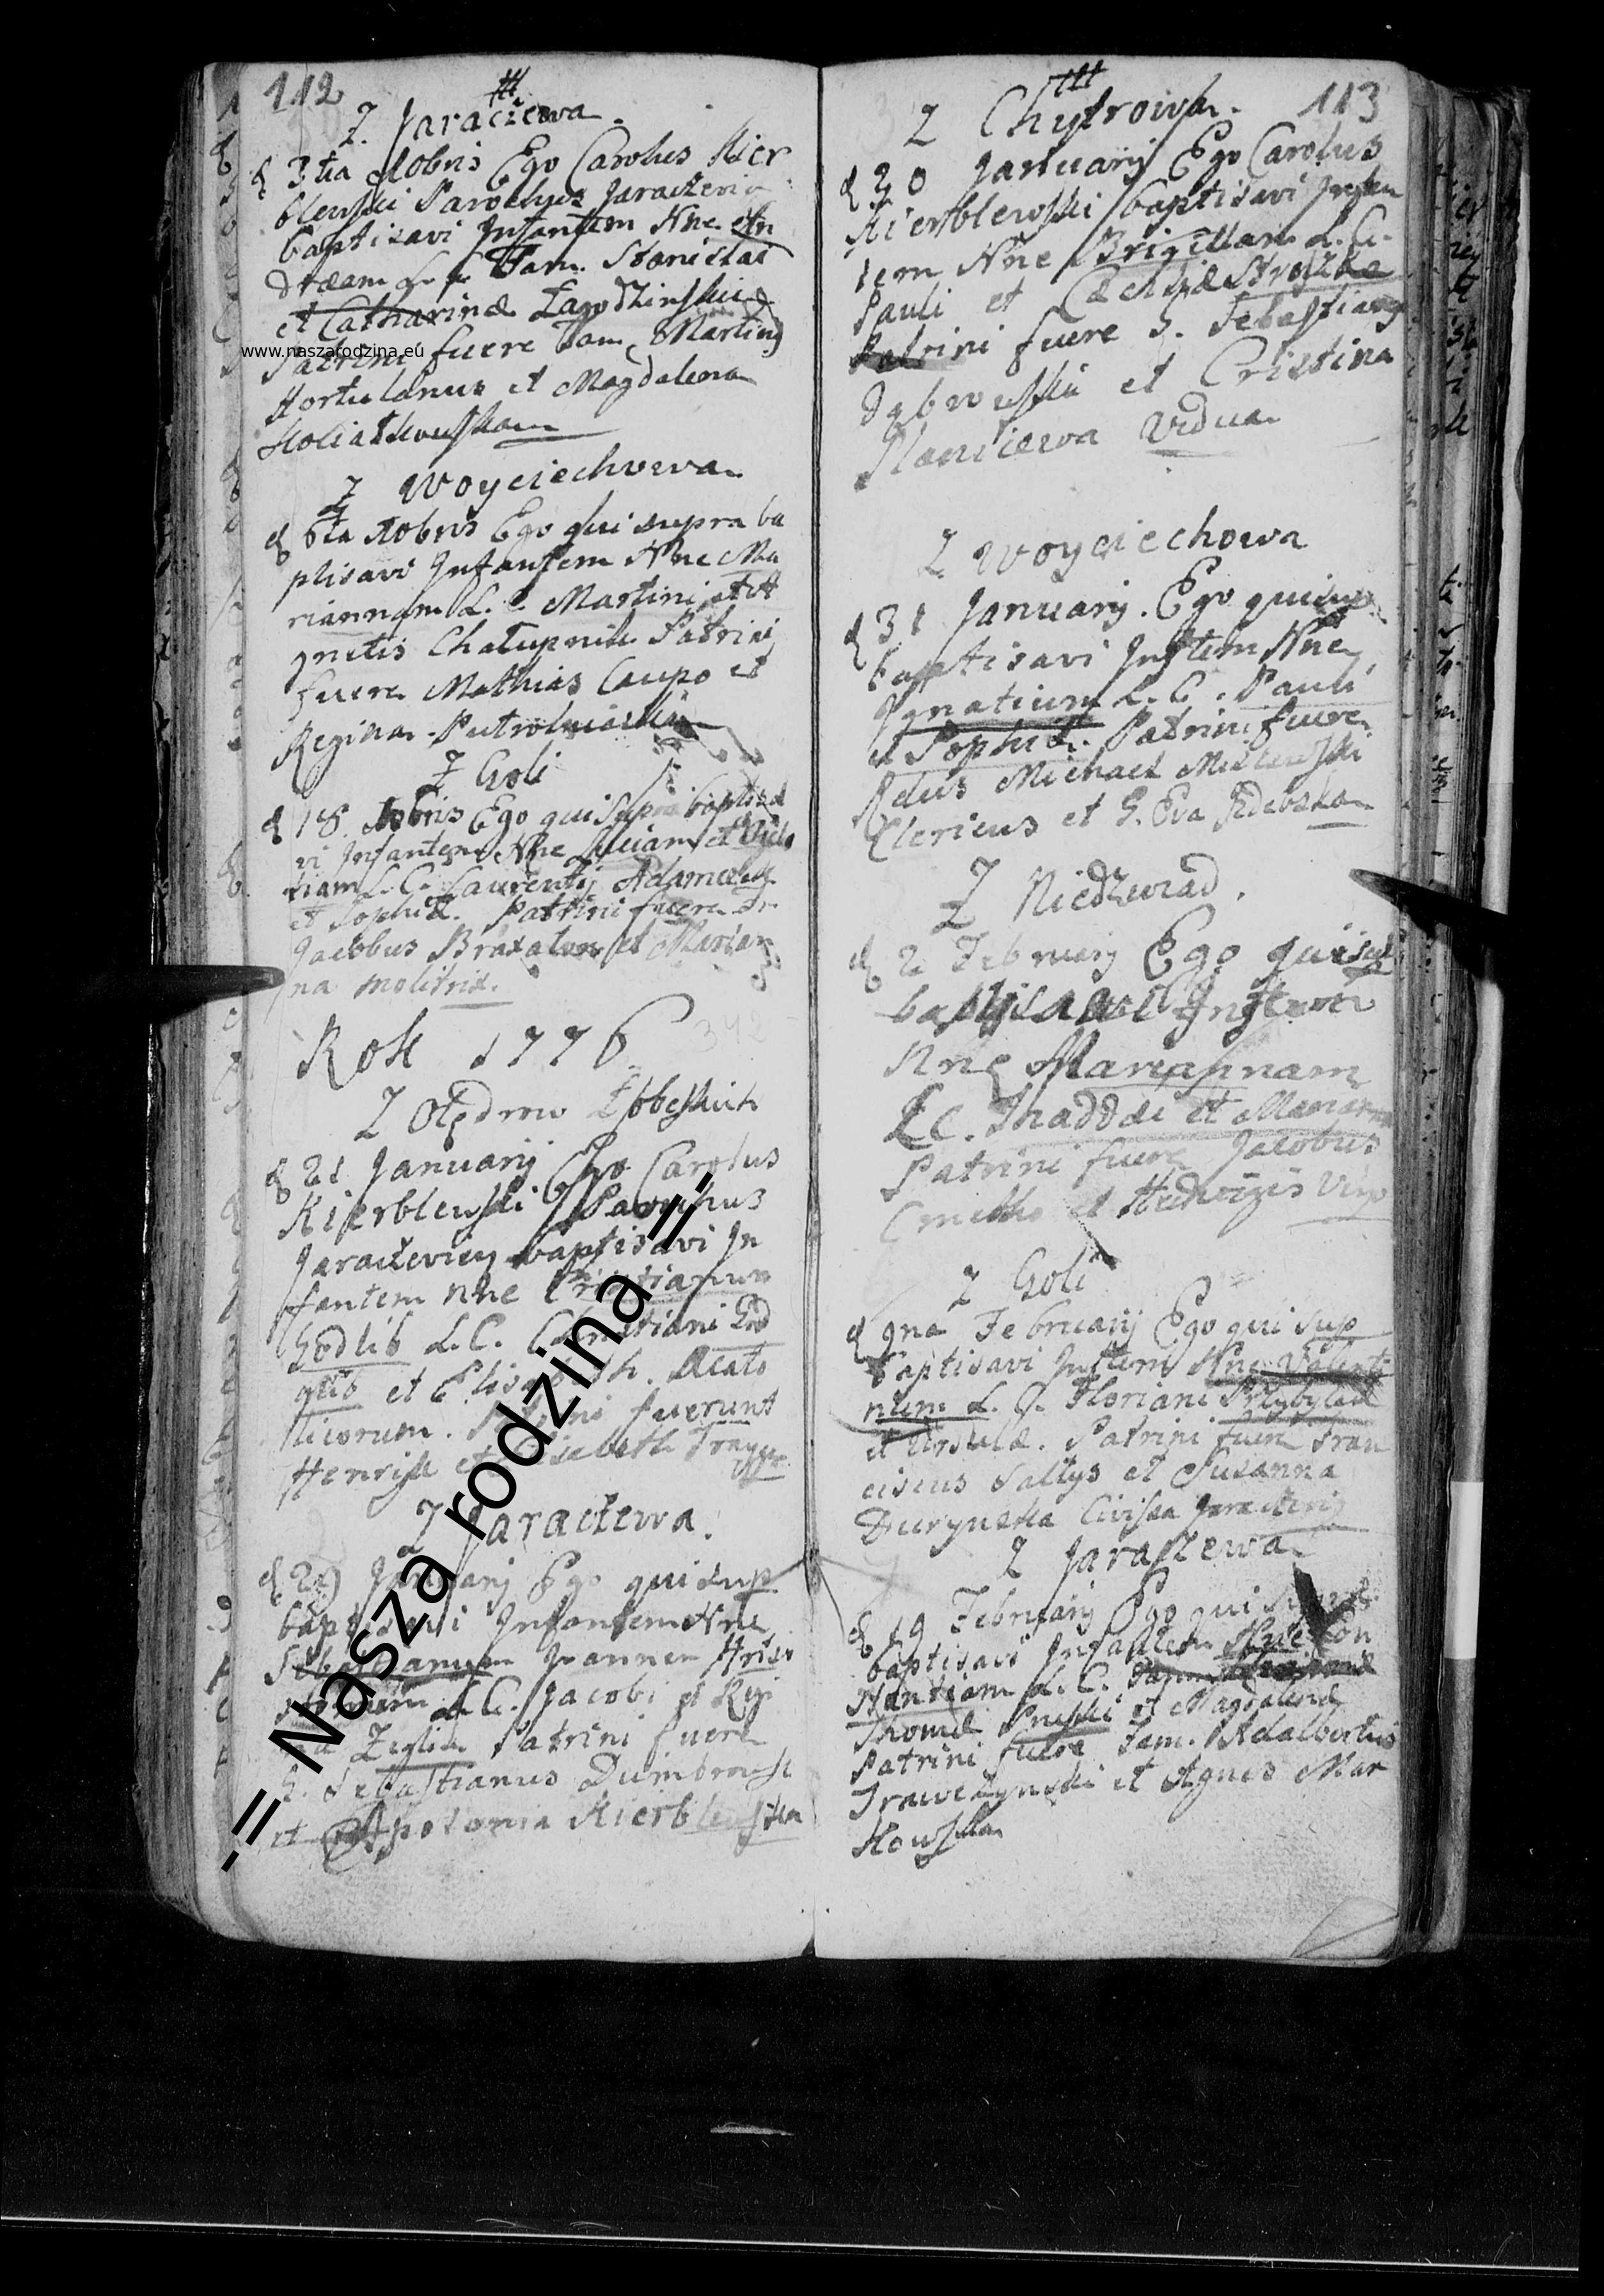 112
Z Jaraczewa
d 3tia Xobris Ego Carolus Kier
blewski Parochus Jaraczevien
baptisavi Infantem Nne An
dream Fam. Stanislai
et Catharinæ Łagodzinskie
Patrini fuere Fam. Martinus
Hortulanus et Magdalena
Z Woyciechowa
d 6ta Xobris Ego qui supra ba
ptisavi Infantem Nne Ma
riannam L. C. Martini et A
gnetis Chałupnik Patrini
fuere Mathias Caupo et
Regina
Z Goli
d 18 Xobris Ego qui supra baptisa
vi Infantem Nne Luciam et Victo
riam L. C. Laurentij
et Sophiæ. Patrini fuere
Jacobus Braxator et Marian
na molitrix.
Rok 1776
Z Olędrow Łobeskich
d 21 January Ego Carolus
Kierblewski Parochus
Jaraczevien baptisavi In
fantem Nne Cristianum
Godlib L. C. Christiani God
glib et Elisabeth. Acato
licorum. Patrini fuerunt
Henrik et Elisabeth
Z Jaraczewa.
d 29 January Ego qui sup
baptisavi Infantem Nne
Sebastianum Joannem Hriso
stomum L. C. Jacobi et Regi
næ Patrini fuere
G. Sebastianus Dumbrowski
et Apolonia Kierblewska
113
Z Chytrowa
d 30 January Ego Carolus
Kierblewski baptisavi Infan
tem Nne Brigittam L. C.
Pauli et Cæciliæ
Patrini fuere G. Sebastianus
et Cristina
Vidua
Z Woyciechowa
d 31 January. Ego qui sup
baptisavi Inftem Nne
Ignatium L. C. Pauli
et Sophiæ. Patrini fuere
Rdus Michael
Clericus et G. Eva
Z Niedzwiad.
d 2 February Ego qui sup
baptisavi Inftem
Nne Mariannam
L C. Thaddæi et Marian
Patrini fuere Jacobus
Cmetho et Hedvigis Virgo
Z Goli
d 9na February Ego qui sup
baptisavi Inftem Nne Valenti
num L. C. Floriani Przybylak
et Ursulæ. Patrini fuere Fran
ciscus Sołtys et Susanna
Durynska Civissa
Z Jaraczewa
d 19 February Ego qui supra
baptisavi Infantem Nne Con
stantiam L. C.
Thomæ et Magdalenæ
Patrini fuere Fam. Adalbertus
et Agnes Mar
kowska
www.naszarodzina.eu
-=Nasza rodzina=-